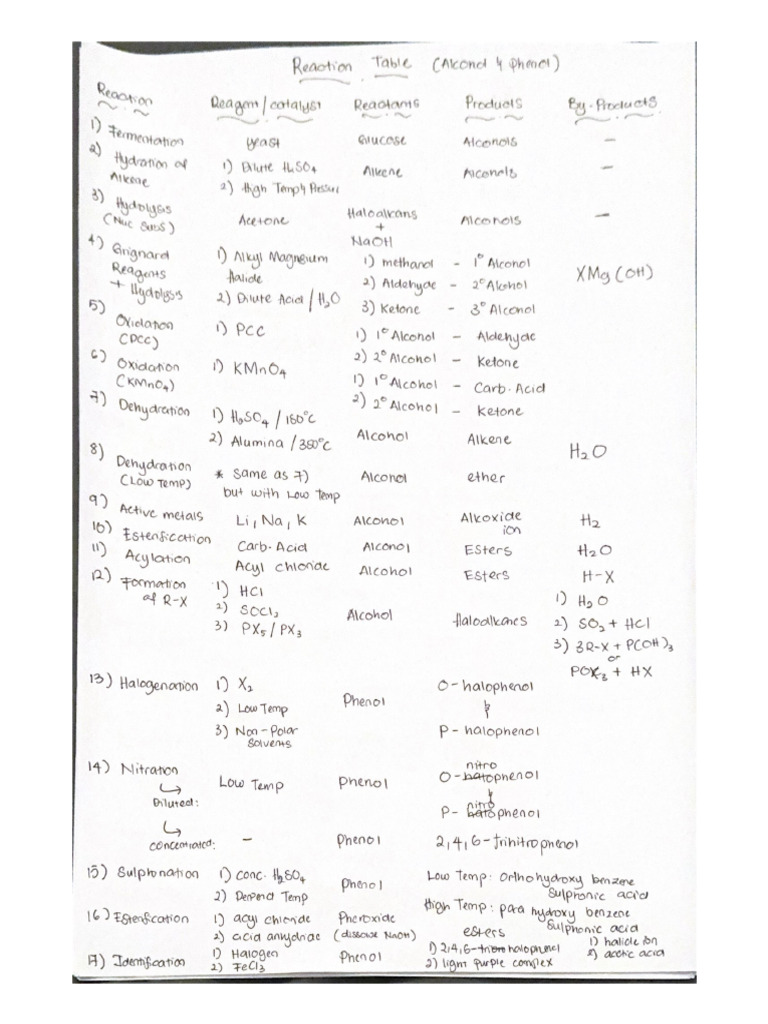 Reaction Table (Alcohol & phenol)
Reaction Reagent/catalyst Reactants Products By-Products
1) Fermentation yeast Glucose Alcohols —
2) Hydration of Alkene 1) Dilute H₂SO₄ Alkene Alcohols —
2) High Temp & Pressure
3) Hydolysis (Nuc Subs) Acetone Haloalkans + NaOH Alcohols —
4) Grignard Reagents + Hydolysis 1) Alkyl Magnesium Halide 1) methanol – 1° Alcohol XMg(OH)
2) Dilute Acid / H₂O 2) Aldehyde – 2° Alcohol
3) Ketone – 3° Alcohol
5) Oxidation (PCC) 1) PCC 1) 1° Alcohol – Aldehyde
2) 2° Alcohol – Ketone
6) Oxidation (KMnO₄) 1) KMnO₄ 1) 1° Alcohol – Carb. Acid
2) 2° Alcohol – Ketone
7) Dehydration 1) H₂SO₄ / 180°C Alcohol Alkene H₂O
2) Alumina / 350°C
8) Dehydration (Low Temp) * same as 7) but with Low Temp Alcohol ether
9) Active metals Li, Na, K Alcohol Alkoxide ion H₂
10) Esterification Carb. Acid Alcohol Esters H₂O
11) Acylation Acyl chloride Alcohol Esters H-X
12) Formation of R-X 1) HCl Alcohol Haloalkanes 1) H₂O
2) SOCl₂ 2) SO₂ + HCl
3) PX₅ / PX₃ 3) 3R-X + P(OH)₃
or
POX₃ + HX
13) Halogenation 1) X₂ Phenol O-halophenol
2) Low Temp &
3) Non-Polar Solvents P-halophenol
14) Nitration Low Temp Phenol O-nitrophenol
Diluted: &
P-nitrophenol
concentrated: – Phenol 2,4,6-trinitrophenol
15) Sulphonation 1) conc. H₂SO₄ Phenol Low Temp: Orthohydroxy benzene Sulphonic acid
2) Depend Temp High Temp: para hydroxy benzene Sulphonic acid
16) Esterification 1) acyl chloride Pheroxide esters 1) halide ion
2) acid anhydride (dissolve NaOH) 2) acetic acid
17) Identification 1) Halogen Phenol 1) 2,4,6-halophenol
2) FeCl₃ 2) light purple complex